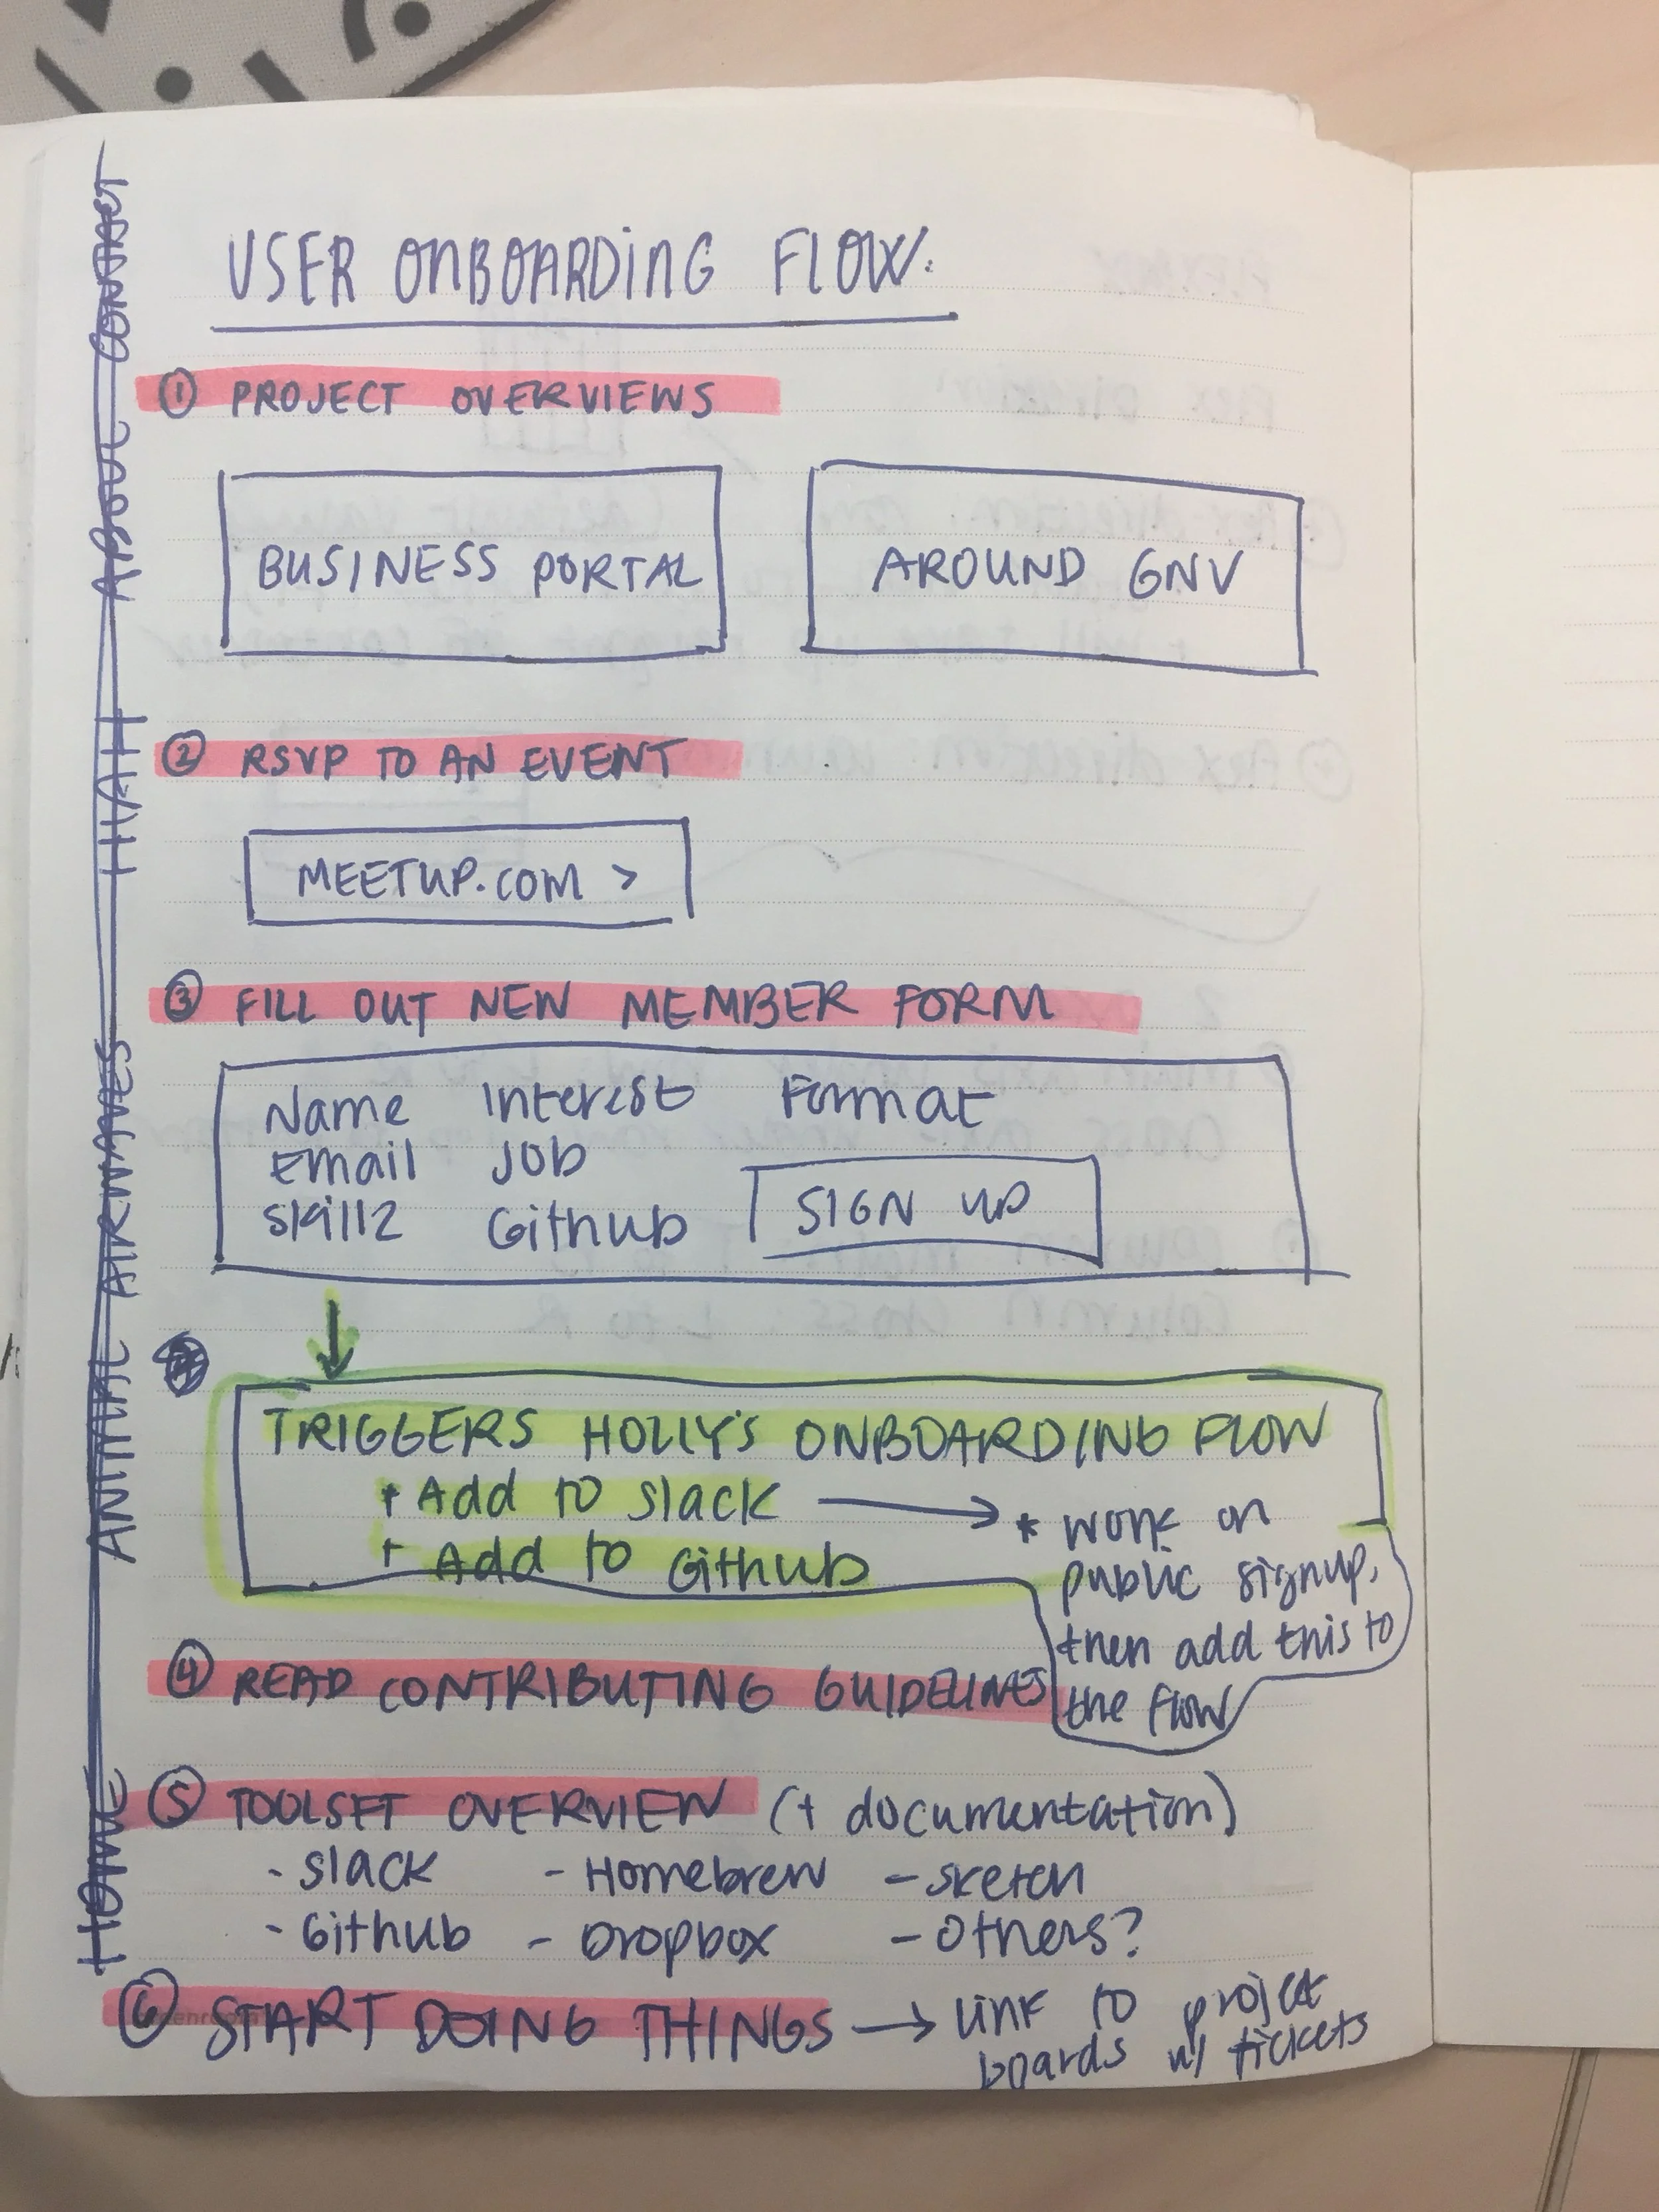 USER ONBOARDING FLOW:
① PROJECT OVERVIEWS
BUSINESS PORTAL
AROUND GNV
② RSVP TO AN EVENT
MEETUP.COM >
③ FILL OUT NEW MEMBER FORM
Name Interest Format
Email Job
Skillz Github
SIGN UP
TRIGGERS HOLLY'S ONBOARDING FLOW
+ Add to slack
+ Add to Github
* work on
public signup,
then add this to
the flow
④ READ CONTRIBUTING GUIDELINES
⑤ TOOLSET OVERVIEW (+ documentation)
- Slack - Homebrew - Sketch
- Github - Dropbox - Others?
⑥ START DOING THINGS → Link to project
boards w/ tickets
HOME
ABOUT
CONTACT